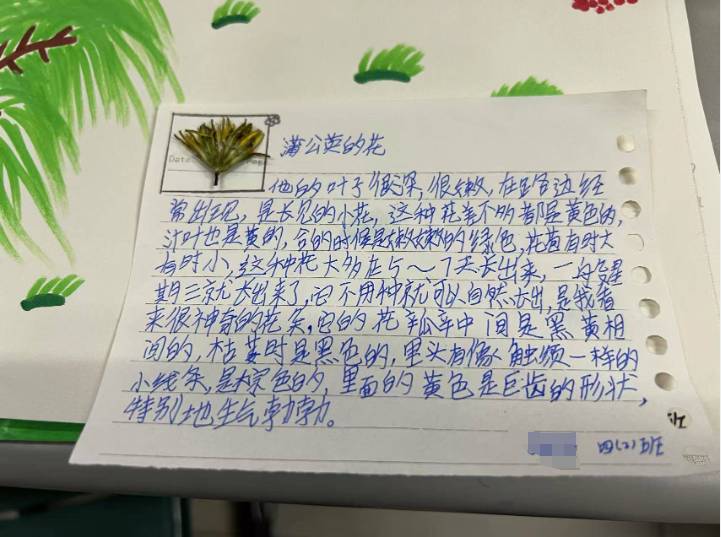 Date
蒲公英的花
他的叶子很深,很嫩,在路边经
常出现,是长见的小花,这种花差不多都是黄色的,
汁叶也是黄的,合的时候是嫩嫩的绿色,花苗有时大
有时小,这种花大多在5~7天长出来,一般星
期三就长出来了,它不用种就可以自然长出,是我看
来很神奇的花朵,它的花瓣中间是黑黄相
间的,枯萎时是黑色的,里头有像触须一样的
小线条,是棕色的,里面的黄色是巨齿的形状,
特别地生气勃勃。
四(2)班